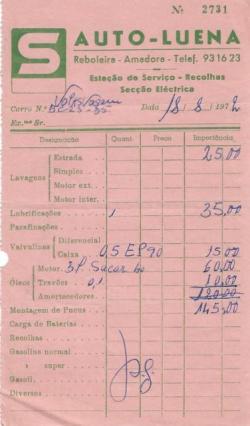 Nº 2731
S AUTO-LUENA
Reboleira - Amadora - Telef. 931623
Estação de Serviço - Recolhas
Secção Eléctrica
Carro N.º Volkswagem Data 18/8/1972
Ex.mo Sr.
Designação Quant. Preço Importância
Lavagens
Estrada 25,00
Simples
Motor ext.
Motor inter.
Lubrificações 1 35,00
Parafinações
Valvulinas
Diferencial
Caixa 0,5 EP90 15,00
Óleos
Motor. 60,00
Travões 0,1 10,00
Amortecedores 120,00
Montagem de Pneus 145,00
Carga de Baterias
Recolhas
Gasolina normal
» super
Gasoil
Diversos